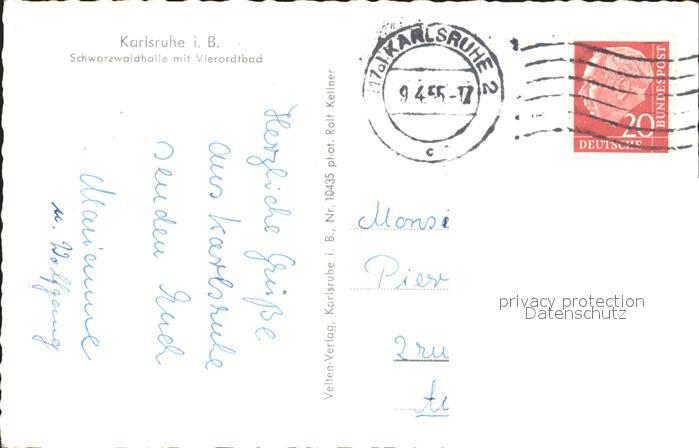 Karlsruhe i. B.
Schwarzwaldhalle mit Vierordtbad
(17a) KARLSRUHE 2
9.4.55-17
c
20
DEUTSCHE
BUNDESPOST
Herzliche Grüße
aus Karlsruhe
senden Euch
Marianne
u. Wolfgang
Velten-Verlag, Karlsruhe i. B., Nr. 10435 phot. Rolf Kellner
Monsi
Pier
2 ru
privacy protection
Datenschutz